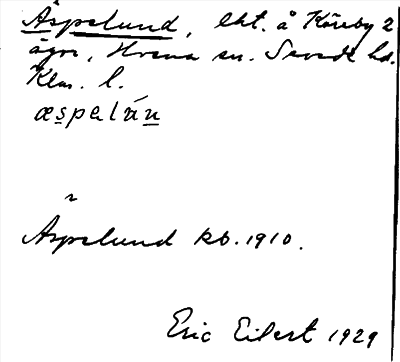 Äspelund, lht. å Köreby 2
ägor, Hvena sn. Sevede hd.
Klm. l.
æspelún
Äspelund kb. 1910.
Eric Eilert 1929